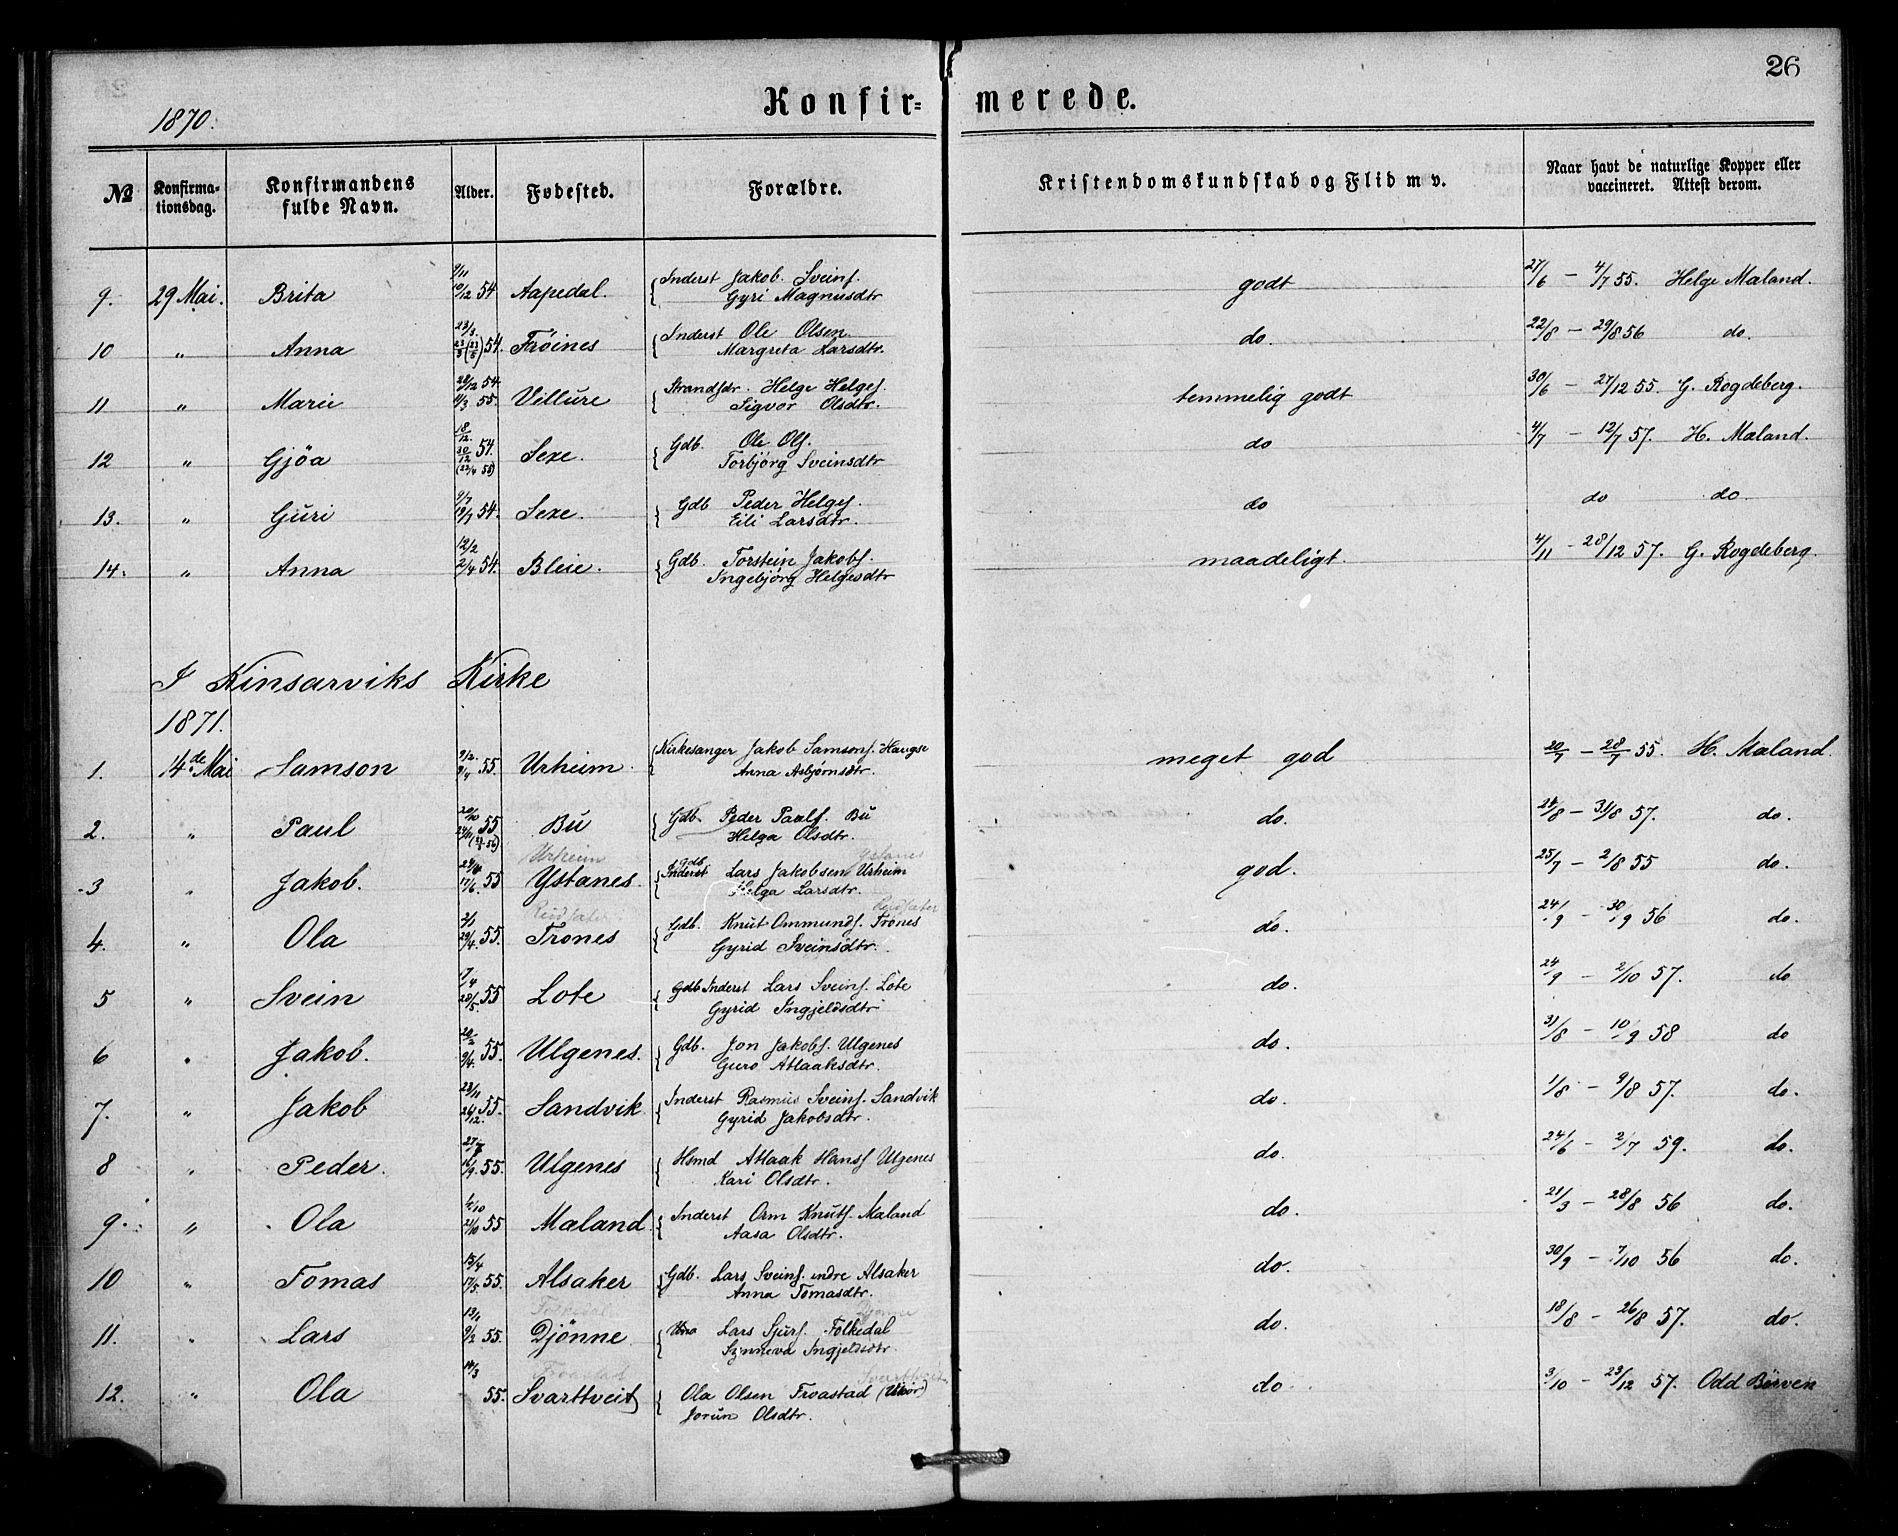 26
Konfir= merede.
1870.
№ Konfirma-tionsdag. Konfirmandens fulde Navn. Alder. Fødested. Forældre. Kristendomskundskab og Flid m v. Naar havt de naturlige Kopper eller vaccineret. Attest derom.
9. 29 Mai. Brita 9/11 10/12 54 Aapedal. Inderst Jakob Sveins. godt 27/6 – 4/7 55. Helge Maland.
Gyri Magnusdtr
10 " Anna 23/3 54. Frøines Inderst Ole Olsen do. 22/8 – 29/8 56 do.
Margreta Larsdtr.
11 " Marii 28/12 54. 11/3 55. Villure Strandsdr. Helge Helges. temmelig godt 30/6 – 27/12 55. G. Rogdeberg.
Sigvor Olsdtr.
12 " Gjøa 18/12 30/12 54. (22/4 55) Sexe. Gdb. Ole Ols. do 4/7 – 12/7 57. H. Maland.
Torbjørg Sveinsdtr
13. " Guri 9/7 19/7 54. Sexe. Gdb Peder Helges. do do do
Eili Larsdtr.
14. " Anna 12/2 2/4 54. Bleie. Gdb. Torstein Jakobs. maadeligt. 4/11 – 28/12 57. G. Rogdeberg.
Ingebjørg Helgesdtr
I Kinsarviks Kirke
1871.
1. 14de Mai Samson 9/2. 9/4 55. Urheim. Kirkesanger Jakob Samsons. Haugse meget god 20/7 – 28/7 55. H. Maland.
Anna Asbjørnsdtr.
2. " Paul 20/10 24/11 55 Bu Gdb. Peder Pauls. Bu do. 24/8 – 31/8 57. do.
Helga Olsdtr.
Urheim Ystanes
3 " Jakob. 24/4 17/6. 55 Ystanes. Gdb Inderst Lars Jakobsen Urheim god. 25/7 – 2/8 55 do.
Helga Larsdtr.
Reidsæter Reidsæter
4. " Ola 2/1 29/4. 55. Trones Gdb. Knut Ommunds. Trones do. 24/9 – 30/9 56 do.
Gyrid Sveinsdtr.
5 " Svein 7/4 28/5. 55 Lote Gdb Inderst Lars Sveins. Lote do. 24/9 – 2/10 57. do
Gyrid Ingjeldsdtr
6 " Jakob. 9/4. 55. Ulgenes. Gdb. Jon Jakobs. Ulgenes do. 31/8 – 10/9 58 do
Guro Atlaaksdtr.
7. " Jakob 23/11 26/12. 55. Sandvik Inderst Rasmus Sveins. Sandvik do. 1/8 – 9/8 57. do.
Gyrid Jakobsdtr.
8 " Peder. 16/9 55. Ulgenes Hsmd Atlaak Hans. Ulgenes do. 24/6 – 2/7 59. do.
Kari Olsdtr.
9. " Ola 21/10 55 Maland. Inderst Orm Knuts. Maland do. 21/3 – 28/8 56 do.
Aasa Olsdtr.
10 " Tomas 15/4 17/5 55. Alsaker Gdb. Lars Sveins. indre Alsaker do. 30/9 – 7/10 56 do.
Anna Tomasdtr.
Folkedal Djønne
11. " Lars 13/1 9/2 55. Djønne Lars Sjurs. Folkedal do. 18/8 – 26/8 57. do.
Synneva Ingjeldsdtr.
Froastad Svarttveit
12. " Ola 14/3 55. Svarttveit Ola Olsen Froastad (Ukør) do. 3/10 – 23/12 57. Odd Børven
Jorun Olsdtr.